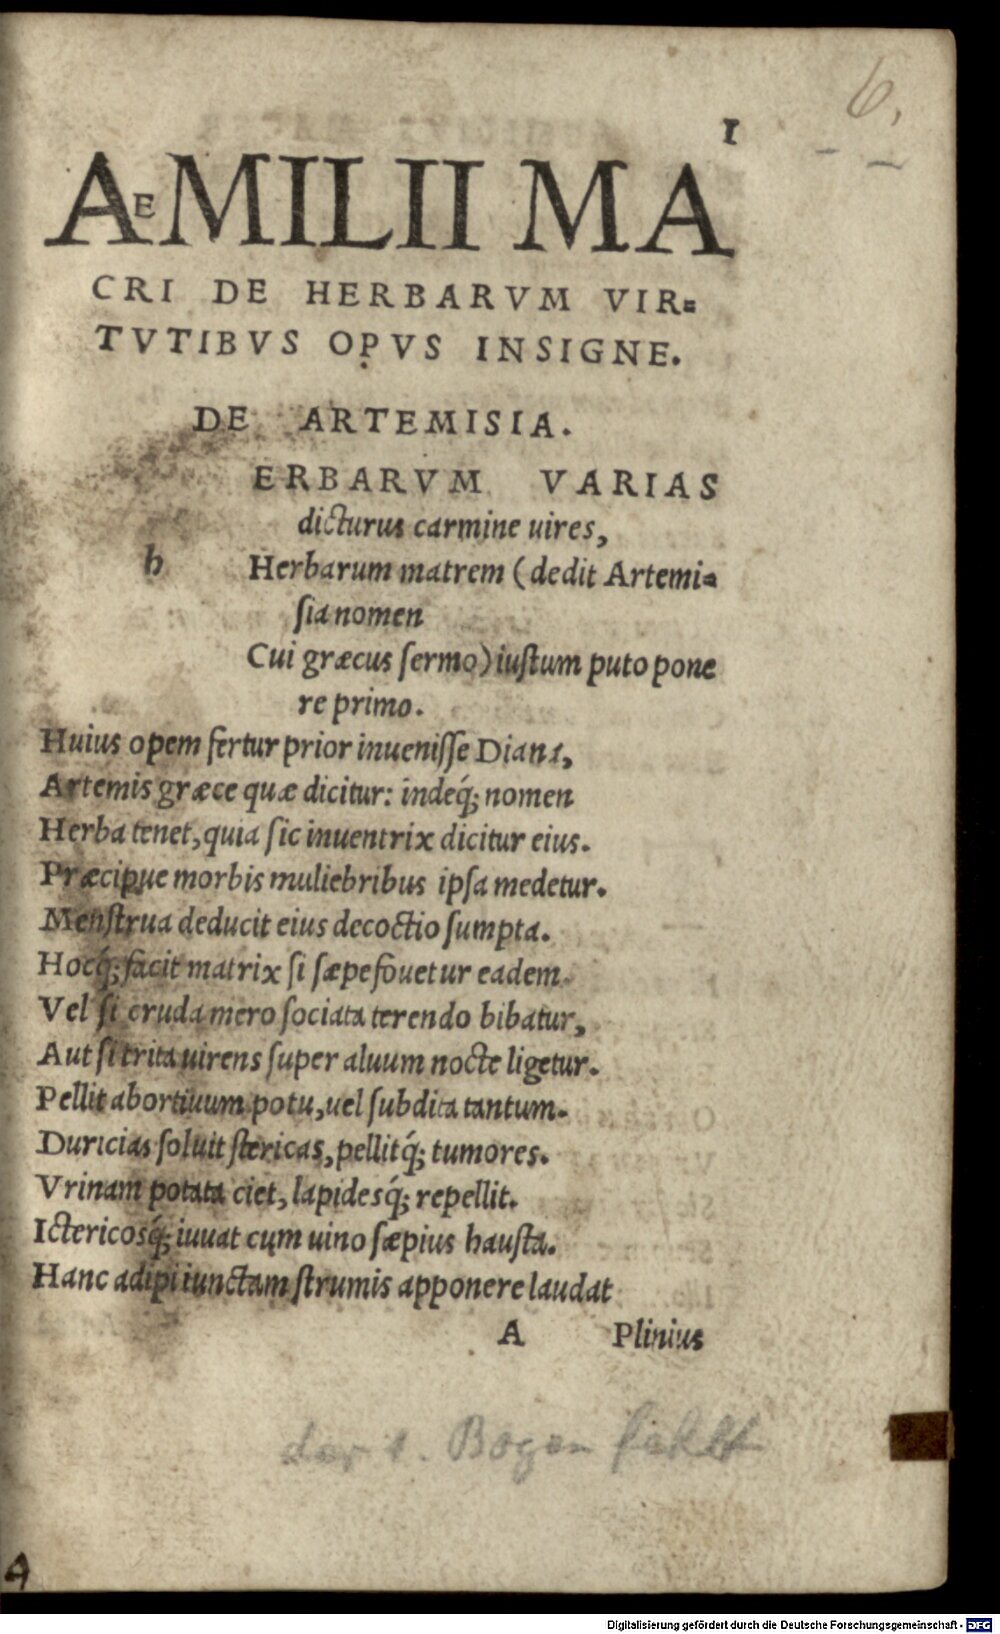 6.
1
AEMILII MA
CRI DE HERBARVM VIR=
TVTIBVS OPVS INSIGNE.
DE ARTEMISIA.
ERBARVM VARIAS
dicturus carmine uires,
h
Herbarum matrem (dedit Artemi=
ſia nomen
Cui græcus ſermo) iuſtum puto pone
re primo.
Huius opem fertur prior inueniſſe Diana,
Artemis græce quæ dicitur: indeq́; nomen
Herba tenet, quia ſic inuentrix dicitur eius.
Præcipue morbis muliebribus ipſa medetur.
Menſtrua deducit eius decoctio ſumpta.
Hocq́; facit matrix ſi ſæpe fouetur eadem.
Vel ſi cruda mero ſociata terendo bibatur,
Aut ſi trita uirens ſuper aluum nocte ligetur.
Pellit abortiuum potu, uel ſubdita tantum.
Duricias ſoluit ſtericas, pellitq́; tumores.
Vrinam potata ciet, lapidesq́; repellit.
Ictericosq́; iuuat cum uino ſæpius hauſta.
Hanc adipi iunctam ſtrumis apponere laudat
A Plinius
der 1. Bogen fehlt
A
Digitalisierung gefördert durch die Deutsche Forschungsgemeinschaft - DFG